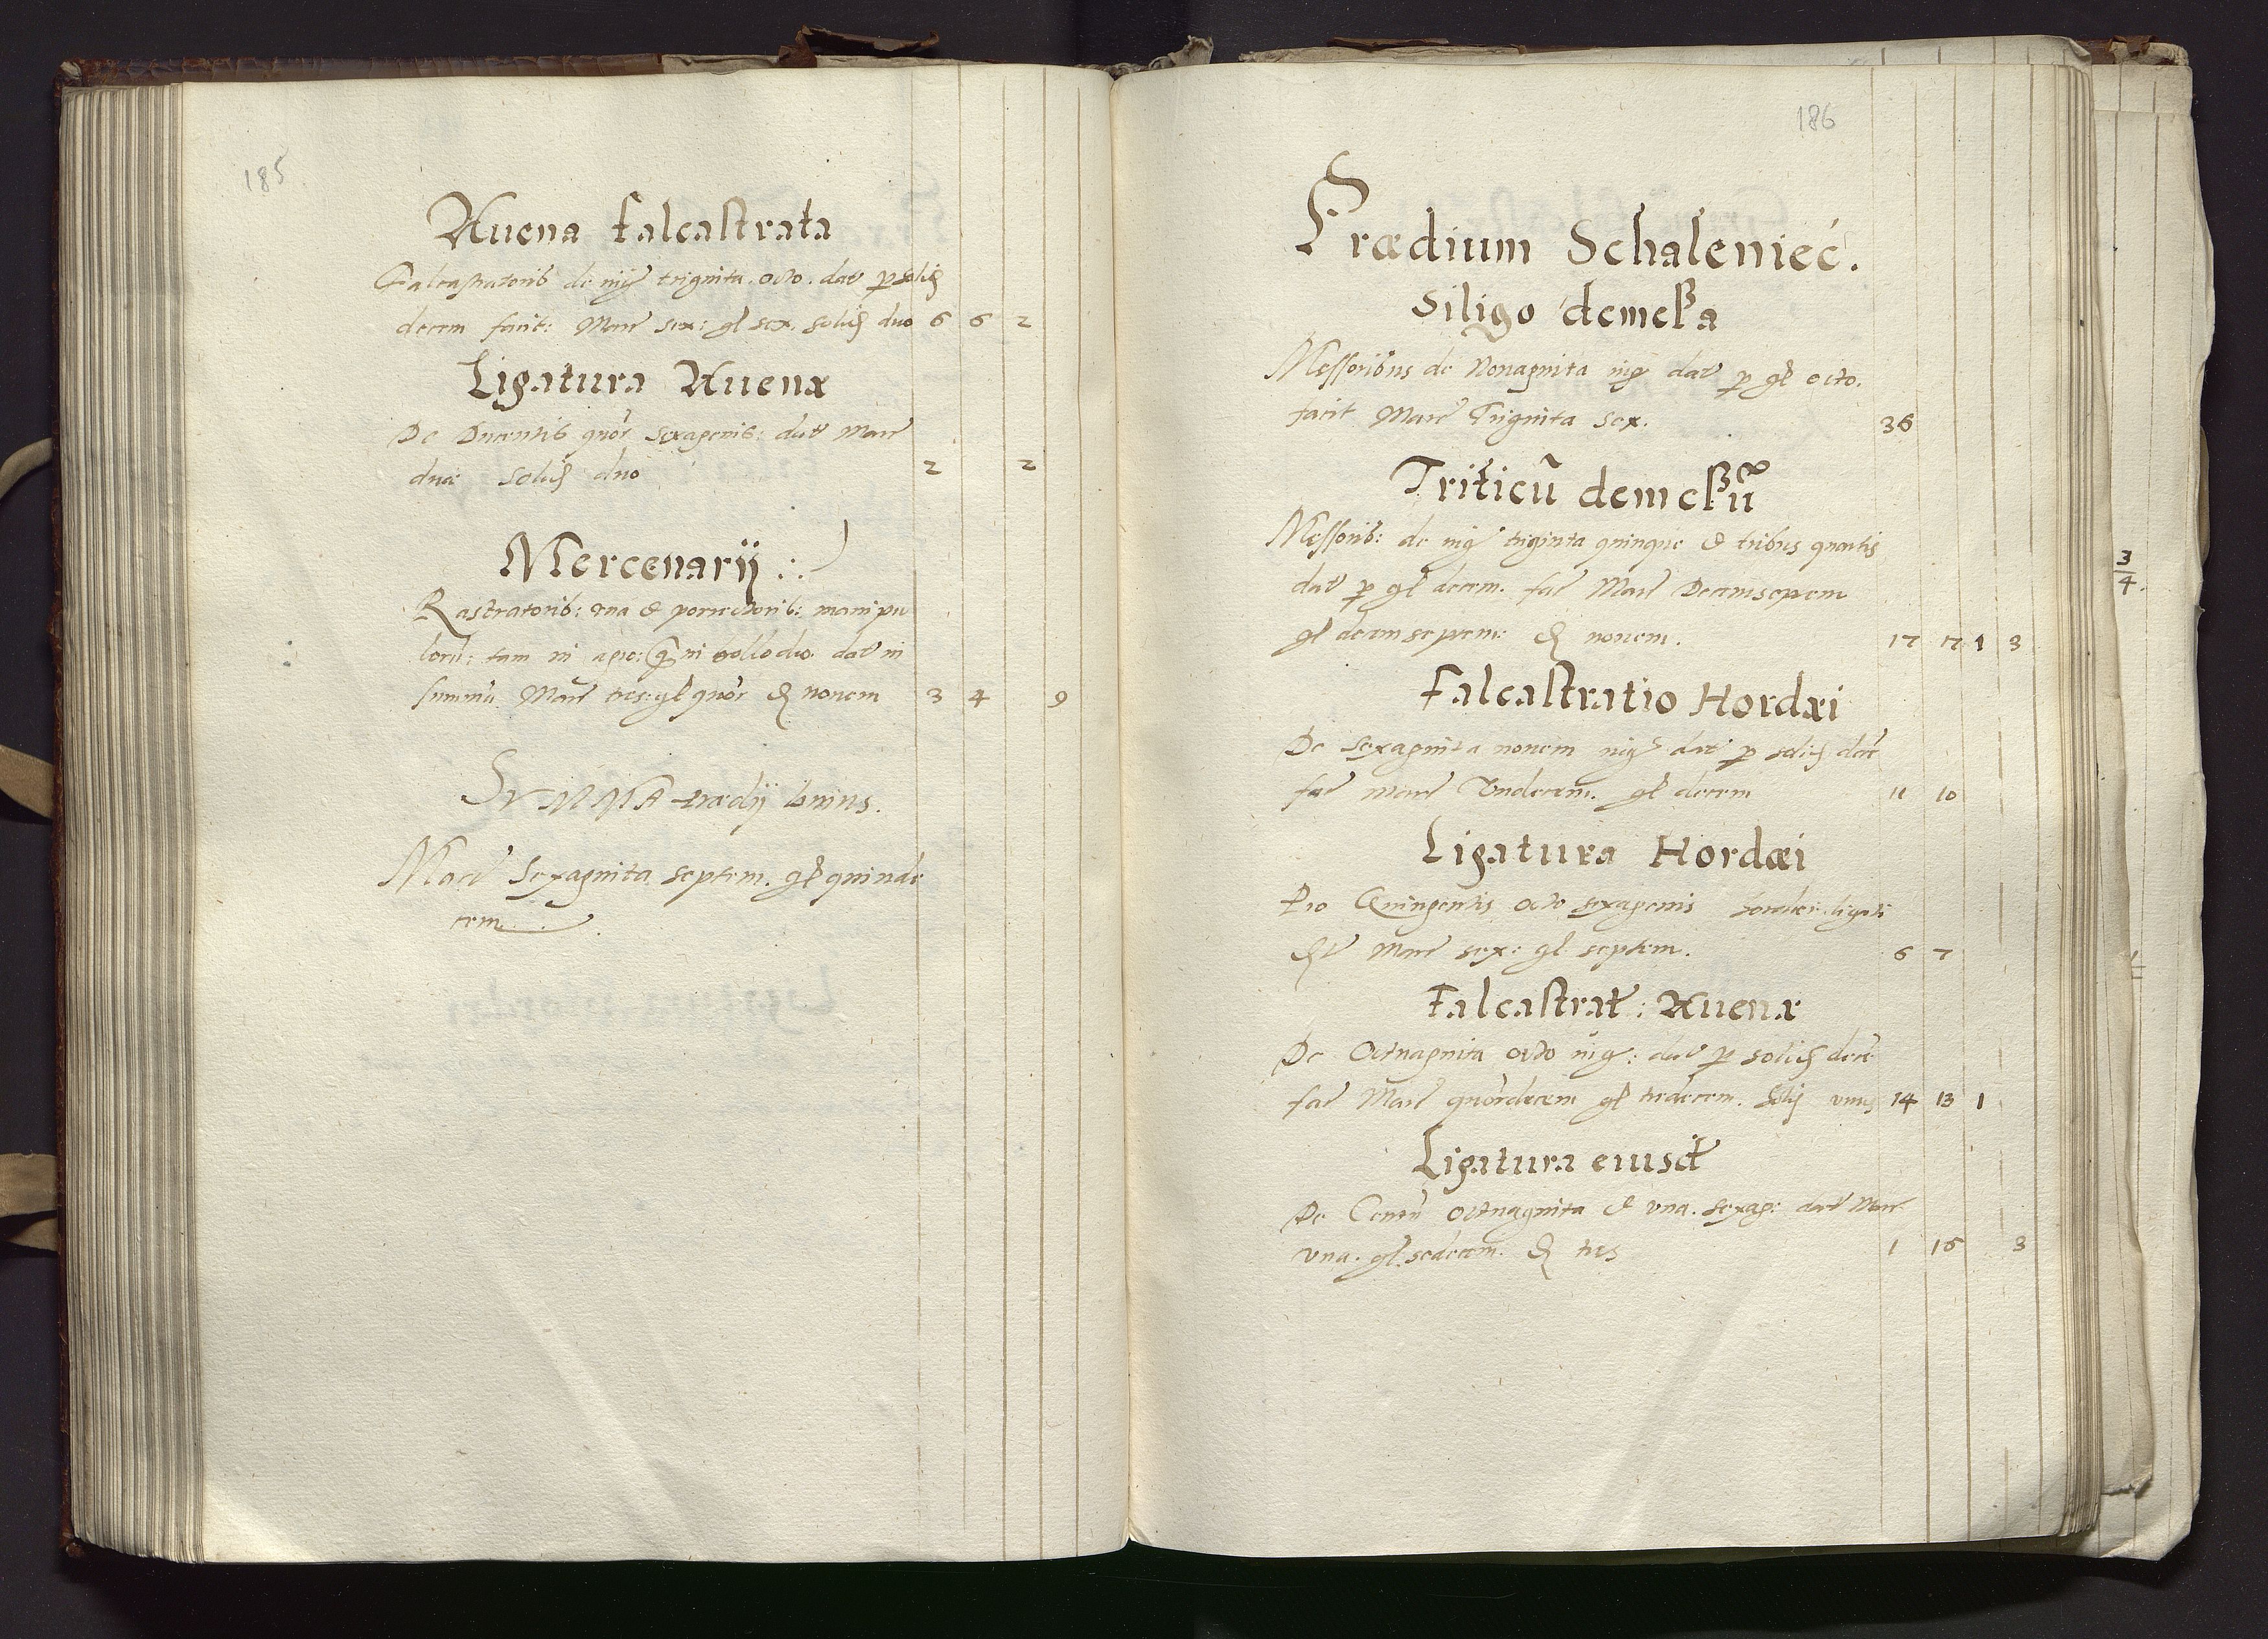 185
Auena falcastrata
Falcastratorib de iug triginta octo. dat p solid
decem facit: Marc sex: gl sex. solid duo 6 6 2
Ligatura Auenæ
De Ducentis quor sexagenis: dat Marc
duæ solid duo 2 2
Mercenarij ∴
Rastratorib: vna & porrectorib: manipu
lorū: tam in
summa Marc tres: gl quor & nouem 3 4 9
SVMMA prædij huius.
Marc Sexaginta septem. gl quinde
cem
186
Prædium Schalenieć.
Siligo demeßa
Messoribus de Nonaginta iug dat p gl octo.
facit Marc Triginta sex. 36
Triticū demeßū
Messorib: de iug triginta quinque & tribus quartis
dat p gl decem. fac Marc Decemseptem
gl decemseptem: nouem. 17 17 1 3
Falcastratio Hordæi
De sexaginta nouem iug dat p solid dece
fac marc Vndecem. gl decem 11 10
Ligatura Hordæi
Pro Quingentis octo sexagenis hordei ligati
Marc sex: gl septem. 6 7
Falcastrat: Auenæ
De Octuaginta octo iug: dat p solid dece
fac Marc quordecem gl tredecem. solid vnus 14 13 1
Ligatura eiusd
De Centū octuaginta & vna. sexag: dat Marc
vna. gl. sedecem. tres 1 16 3
3
4